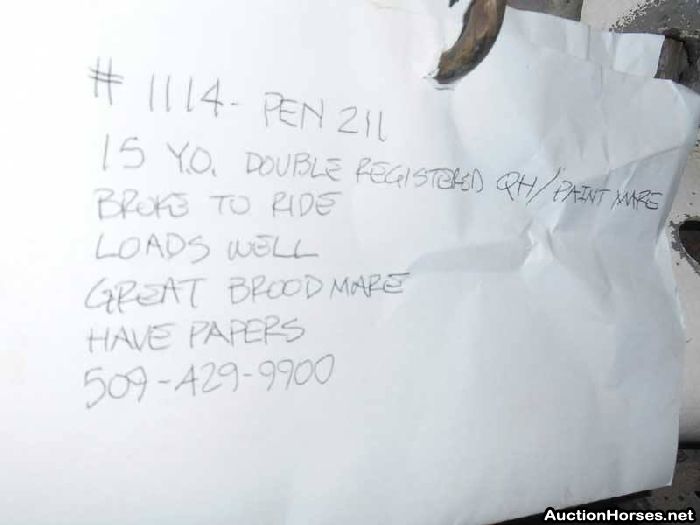 # 1114- PEN 211
15 Y.O. DOUBLE REGISTERED QH/PAINT MARE
BROKE TO RIDE
LOADS WELL
GREAT BROODMARE
HAVE PAPERS
509-429-9900
AuctionHorses.net